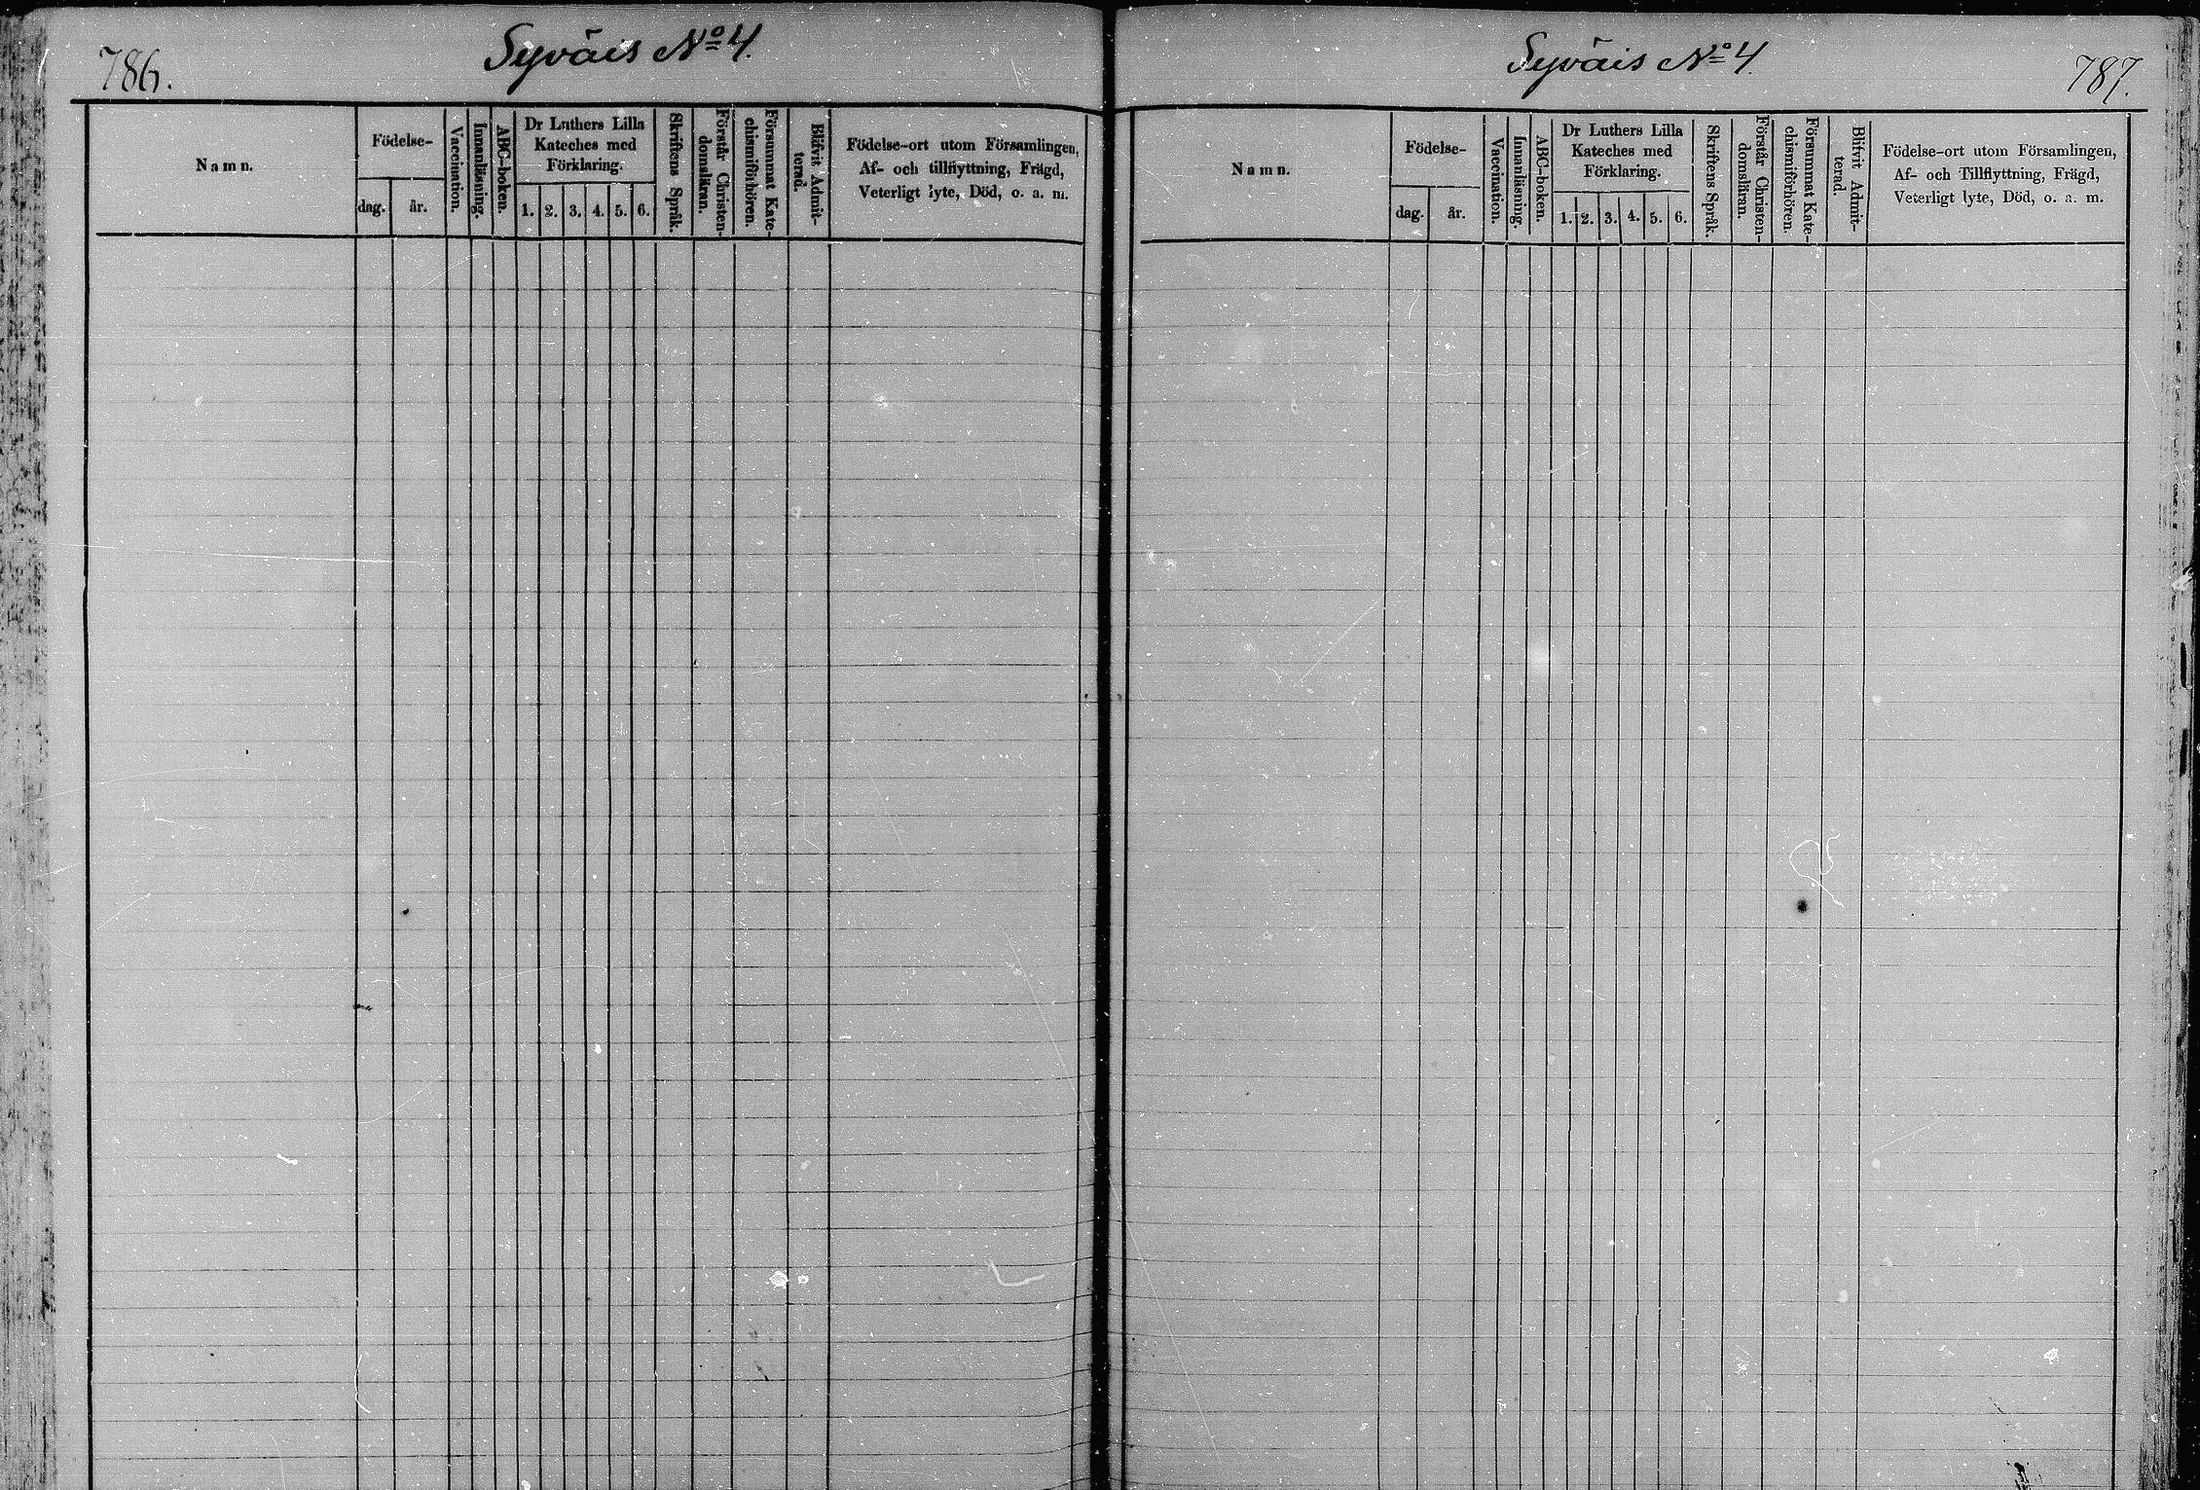 786.
Syväis No 4.
Namn.
Födelse-
dag.
år.
Vaccination.
Innanläsning.
ABC-boken.
Dr Luthers Lilla
Kateches med
Förklaring.
1. 2. 3. 4. 5. 6.
Skriftens Språk.
Förstår Christen-
domsläran.
Försummat Kate-
chismiförhören.
Blifvit Admit-
terad.
Födelse-ort utom Församlingen,
Af- och tillflyttning, Frägd,
Veterligt lyte, Död, o. a. m.
Syväis No 4.
787.
Namn.
Födelse-
dag.
år.
Vaccination.
Innanläsning.
ABC-boken.
Dr Luthers Lilla
Kateches med
Förklaring.
1. 2. 3. 4. 5. 6.
Skriftens Språk.
Förstår Christen-
domsläran.
Försummat Kate-
chismiförhören.
Blifvit Admit-
terad.
Födelse-ort utom Församlingen,
Af- och Tillflyttning, Frägd,
Veterligt lyte, Död, o. a. m.